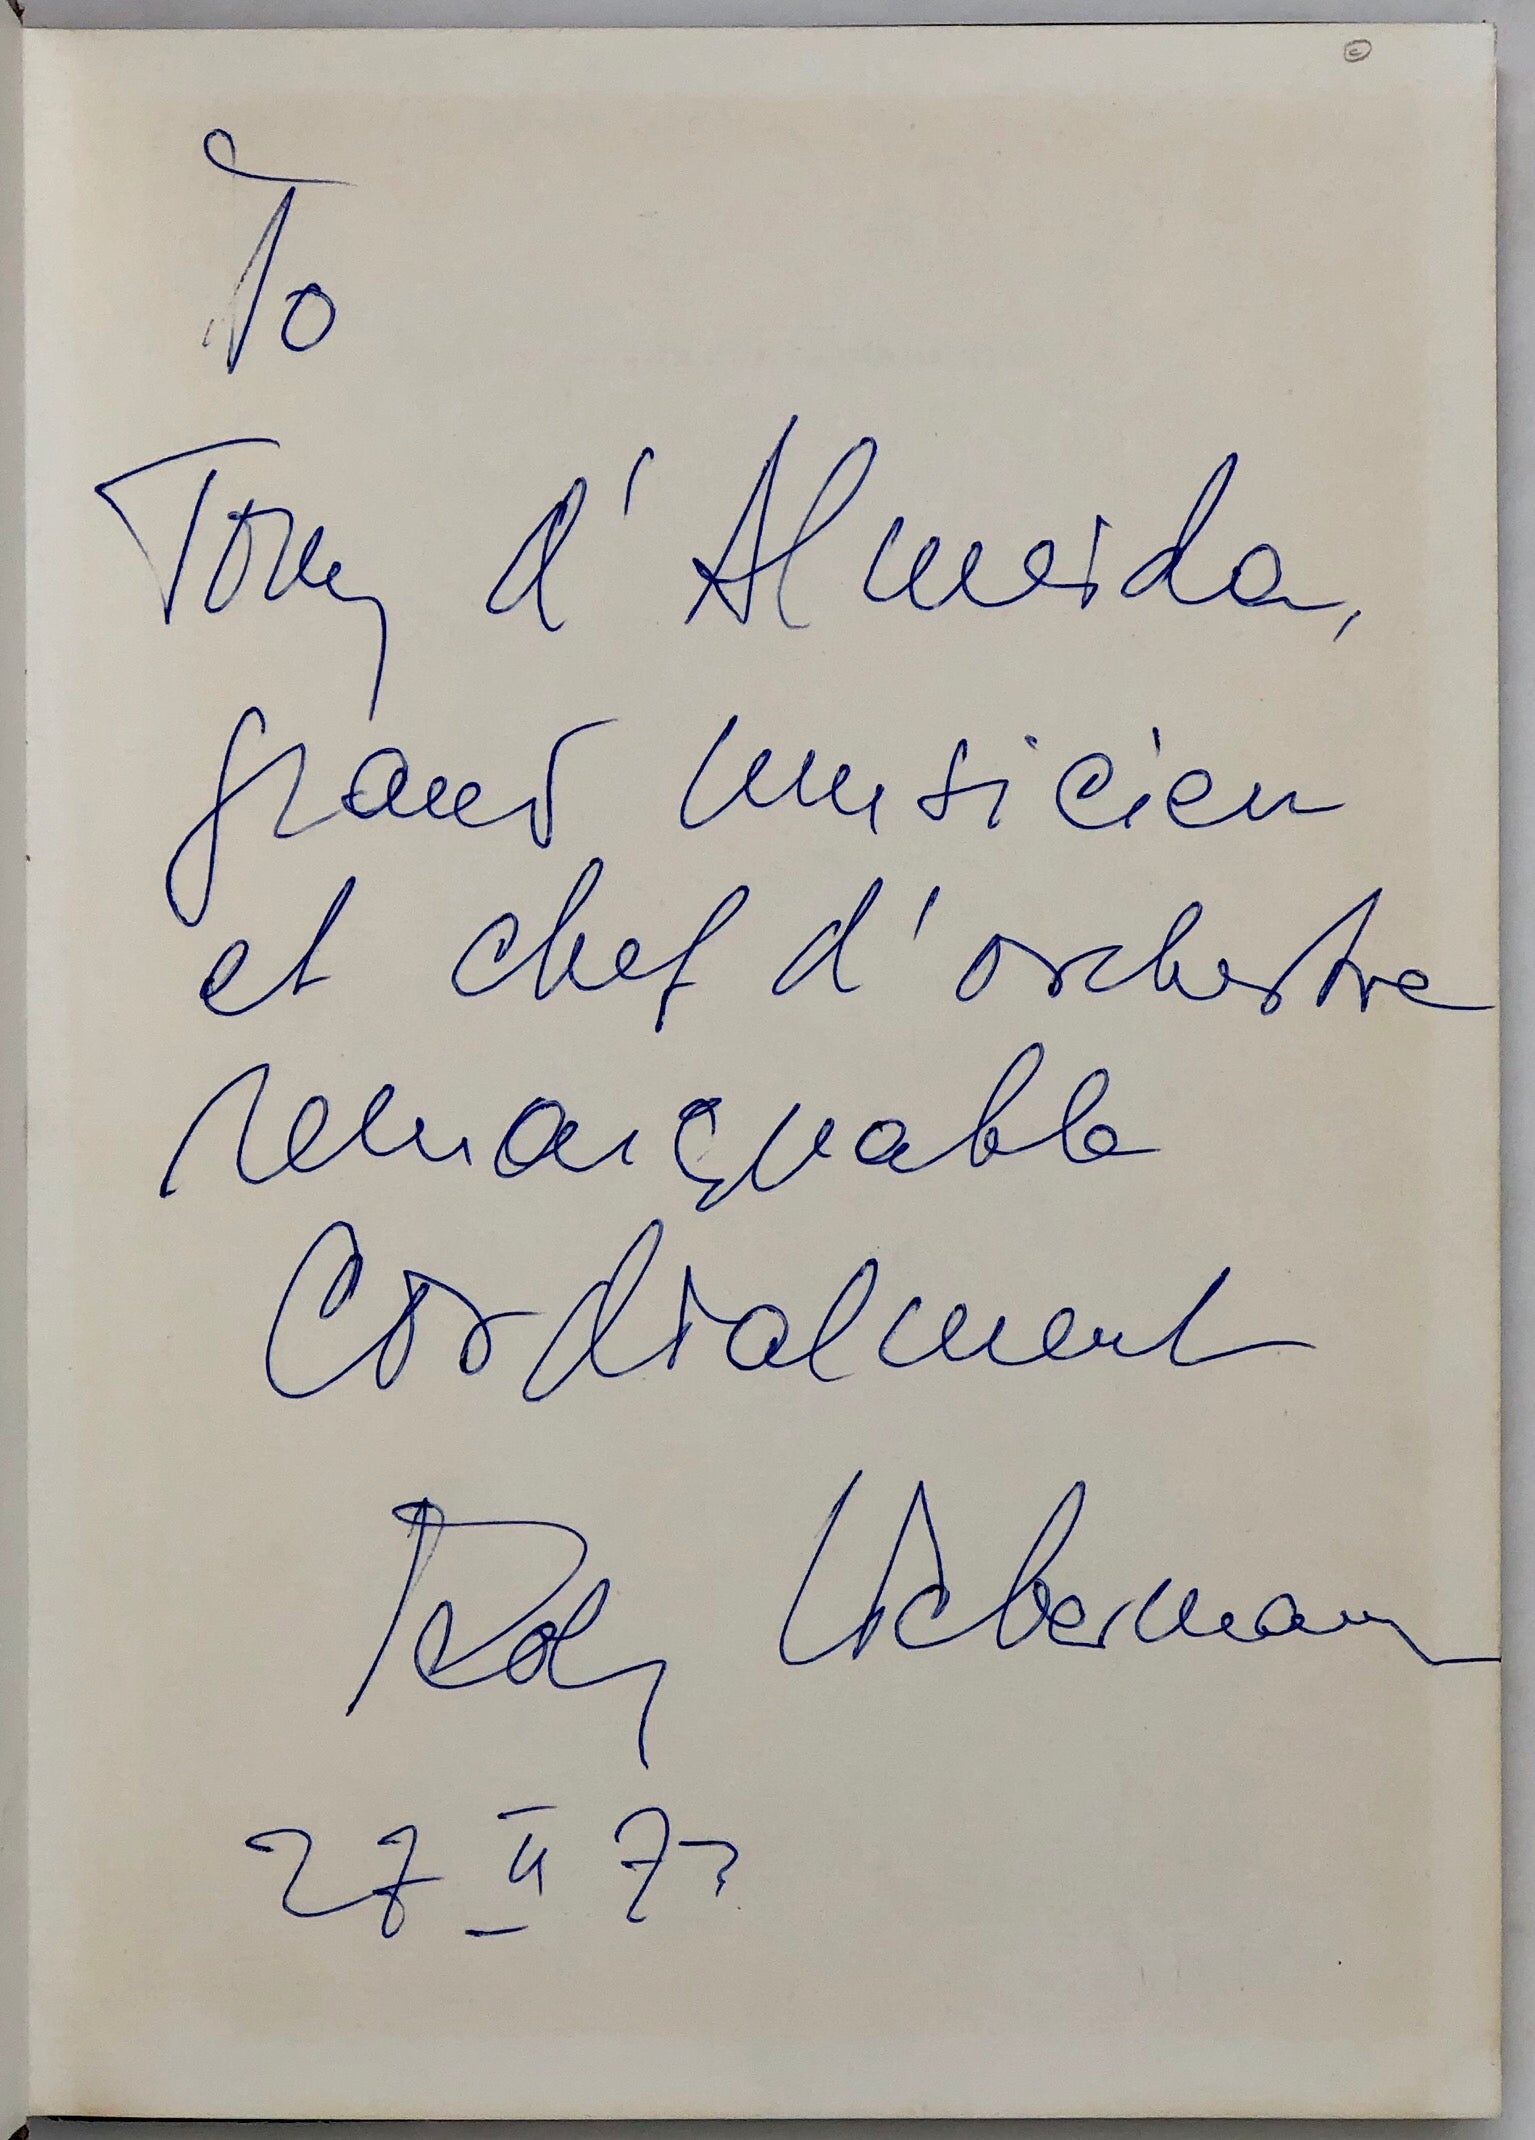 To
Tony d'Almeida,
grand musicien
et chef d'orchestre
remarquable
Cordialment
Rolf Liebermann
27 II